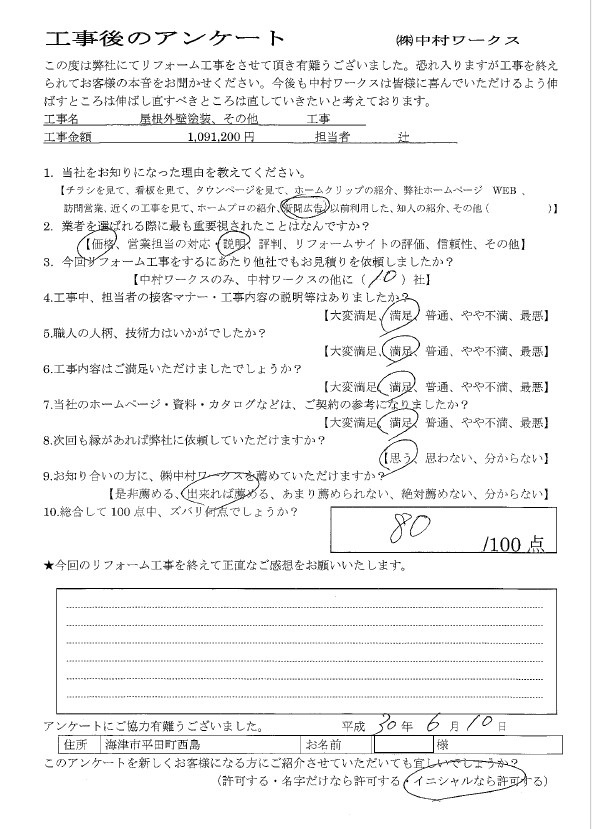 工事後のアンケート ㈱中村ワークス
この度は弊社にてリフォーム工事をさせて頂き有難うございました。恐れ入りますが工事を終え
られてお客様の本音をお聞かせください。今後も中村ワークスは皆様に喜んでいただけるよう伸
ばすところは伸ばし直すべきところは直していきたいと考えております。
工事名 屋根外壁塗装、その他 工事
工事金額 1,091,200円 担当者 辻
1．当社をお知りになった理由を教えてください。
【チラシを見て、看板を見て、タウンページを見て、ホームクリップの紹介、弊社ホームページ WEB 、
訪問営業、近くの工事を見て、ホームプロの紹介、新聞広告、以前利用した、知人の紹介、その他（ ）】
2．業者を選ばれる際に最も重要視されたことはなんですか？
【価格、営業担当の対応・説明、評判、リフォームサイトの評価、信頼性、その他】
3．今回リフォーム工事をするにあたり他社でもお見積りを依頼しましたか？
【中村ワークスのみ、中村ワークスの他に（ 10 ）社】
4.工事中、担当者の接客マナー・工事内容の説明等はありましたか？
【大変満足、満足、普通、やや不満、最悪】
5.職人の人柄、技術力はいかがでしたか？
【大変満足、満足、普通、やや不満、最悪】
6.工事内容はご満足いただけましたでしょうか？
【大変満足、満足、普通、やや不満、最悪】
7.当社のホームページ・資料・カタログなどは、ご契約の参考になりましたか？
【大変満足、満足、普通、やや不満、最悪】
8.次回も縁があれば弊社に依頼していただけますか？
【思う、思わない、分からない】
9.お知り合いの方に、㈱中村ワークスを薦めていただけますか？
【是非薦める、出来れば薦める、あまり薦められない、絶対薦めない、分からない】
10.総合して100点中、ズバリ何点でしょうか？
80 /100点
★今回のリフォーム工事を終えて正直なご感想をお願いいたします。
アンケートにご協力有難うございました。 平成 30 年 6 月 10 日
住所 海津市平田町西島 お名前 様
このアンケートを新しくお客様になる方にご紹介させていただいても宜しいでしょうか？
（許可する・名字だけなら許可する・イニシャルなら許可する）